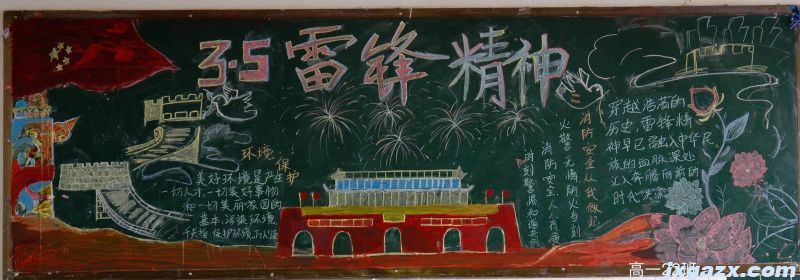 3·5 雷锋精神
环境保护
美好环境是产生
一切人才、一切美好事物
和一切美丽家园的
基本,污染环境
千夫指,保护环境,万人
时刻警惕和谐
消防安全人人有责
火警无情防火与刻
消防安全从我做起
穿越浩荡的
历史,雷锋精
神早已融入中华民
族的血脉深处
汇入奔腾向前的
时代洪流
高一 22班
zxgazx.com